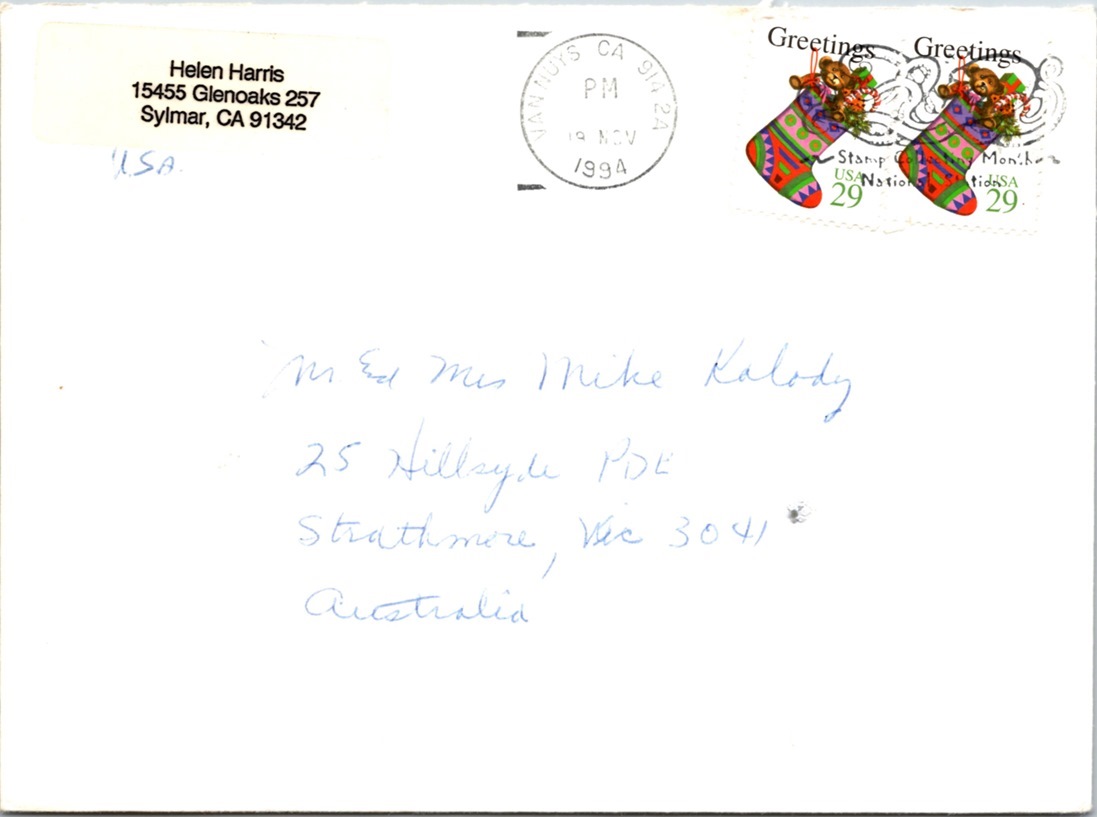 Helen Harris
15455 Glenoaks 257
Sylmar, CA 91342
U.S.A.
VAN NUYS CA 914 2A
PM
NOV
1994
Greetings
USA
29
Greetings
USA
29
Stamp Collecting Month
National Station
Mr. Ed Mrs Mike Kalody
25 Hillsyde PDE
Strathmore, Vic 3041
Australia